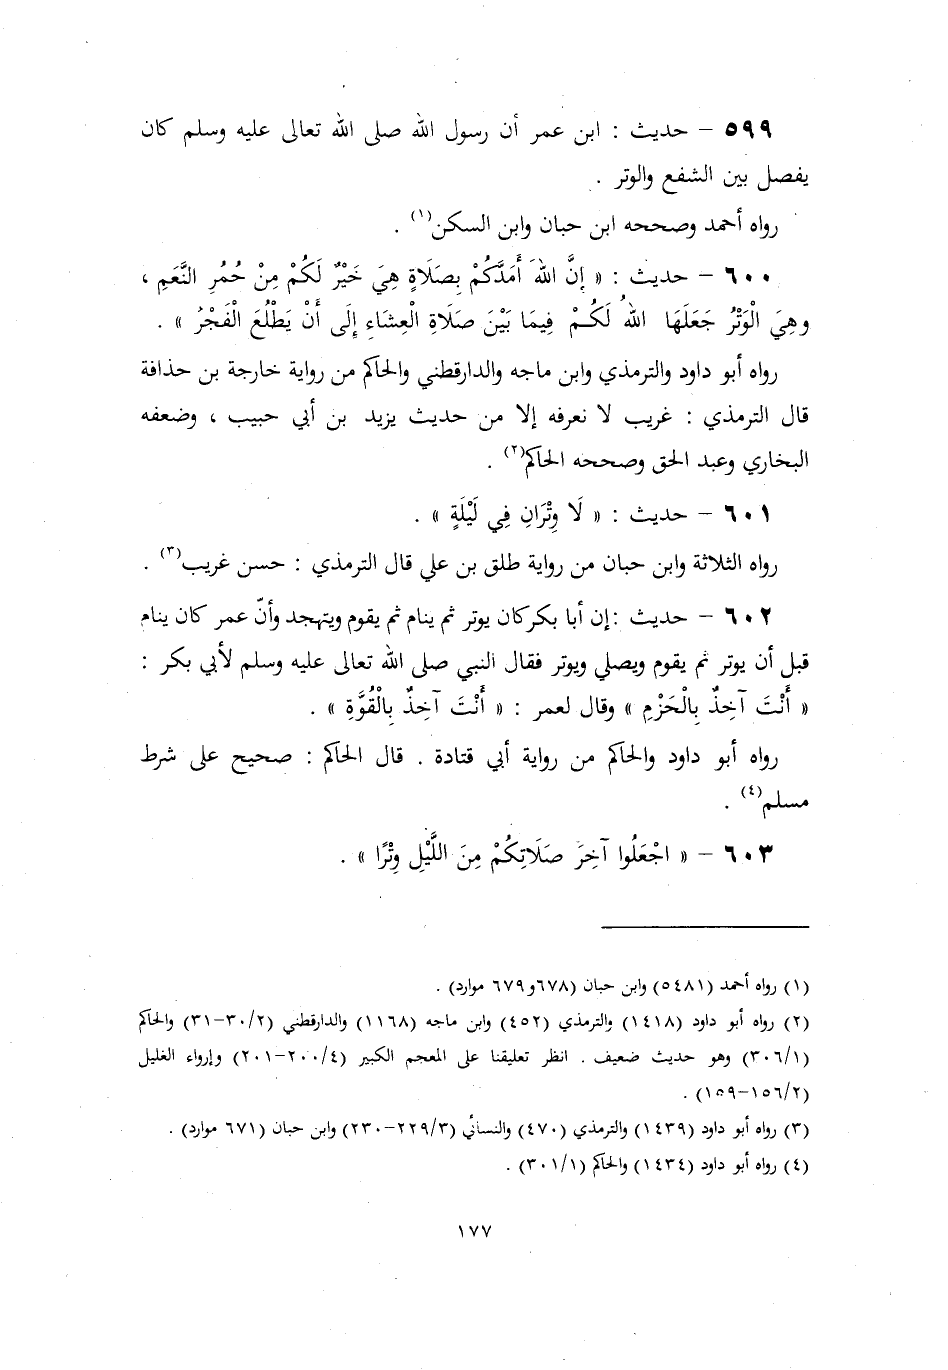 ٥٩٩ – حديث : ابن عمر أن رسول الله صلى الله تعالى عليه وسلم كان
يفصل بين الشفع والوتر .
رواه أحمد وصححه ابن حبان وابن السكن(١) .
٦٠٠ – حديث : « إنَّ اللهَ أَمَدَّكُمْ بِصَلَاةٍ هِيَ خَيْرٌ لَكُمْ مِنْ حُمُرِ النَّعَمِ ،
وهِيَ الْوَتْرُ جَعَلَهَا اللهُ لَكُمْ فِيمَا بَيْنَ صَلَاةِ الْعِشَاءِ إلَى أَنْ يَطْلُعَ الْفَجْرُ » .
رواه أبو داود والترمذي وابن ماجه والدارقطني والحاكم من رواية خارجة بن حذافة
قال الترمذي : غريب لا نعرفه إلا من حديث يزيد بن أبي حبيب ، وضعفه
البخاري وعبد الحق وصححه الحاكم(٢) .
٦٠١ – حديث : « لَا وِتْرَانِ فِي لَيْلَةٍ » .
رواه الثلاثة وابن حبان من رواية طلق بن علي قال الترمذي : حسن غريب(٣) .
٦٠٢ – حديث :إن أبا بكر كان يوتر ثم ينام ثم يقوم ويتهجد وأنّ عمر كان ينام
قبل أن يوتر ثم يقوم ويصلي ويوتر فقال النبي صلى الله تعالى عليه وسلم لأبي بكر :
« أَنْتَ آخِذٌ بِالْحَزْمِ » وقال لعمر : « أَنْتَ آخِذٌ بِالْقُوَّةِ » .
رواه أبو داود والحاكم من رواية أبي قتادة . قال الحاكم : صحيح على شرط
مسلم(٤) .
٦٠٣ – « اجْعَلُوا آخِرَ صَلَاتِكُمْ مِنَ اللَّيْلِ وِتْرًا » .
(١) رواه أحمد (٥٤٨١) وابن حبان (٦٧٨و٦٧٩ موارد) .
(٢) رواه أبو داود (١٤١٨) والترمذي (٤٥٢) وابن ماجه (١١٦٨) والدارقطني (٣٠/٢–٣١) والحاكم
(٣٠٦/١) وهو حديث ضعيف . انظر تعليقنا على المعجم الكبير (٢٠٠/٤–٢٠١) وإرواء الغليل
(١٥٦/٢–١٥٩) .
(٣) رواه أبو داود (١٤٣٩) والترمذي (٤٧٠) والنسائي (٢٢٩/٣–٢٣٠) وابن حبان (٦٧١ موارد) .
(٤) رواه أبو داود (١٤٣٤) والحاكم (٣٠١/١) .
١٧٧